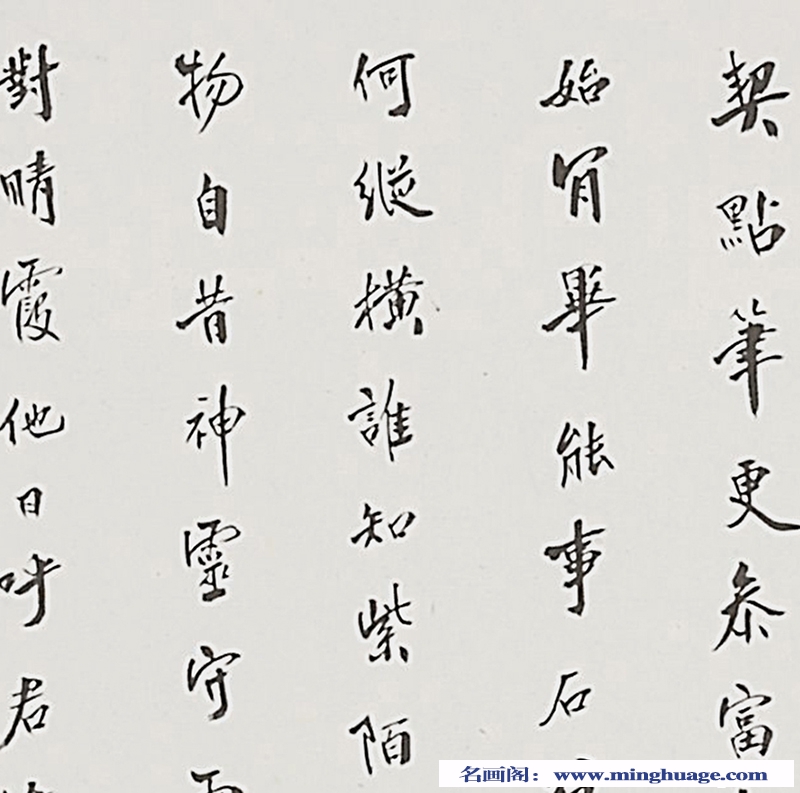 契點筆更参富
始肯畢能事石
何縱橫誰知紫陌
物自昔神靈守
對晴霞他日呼君
名画阁：www.minghuage.com